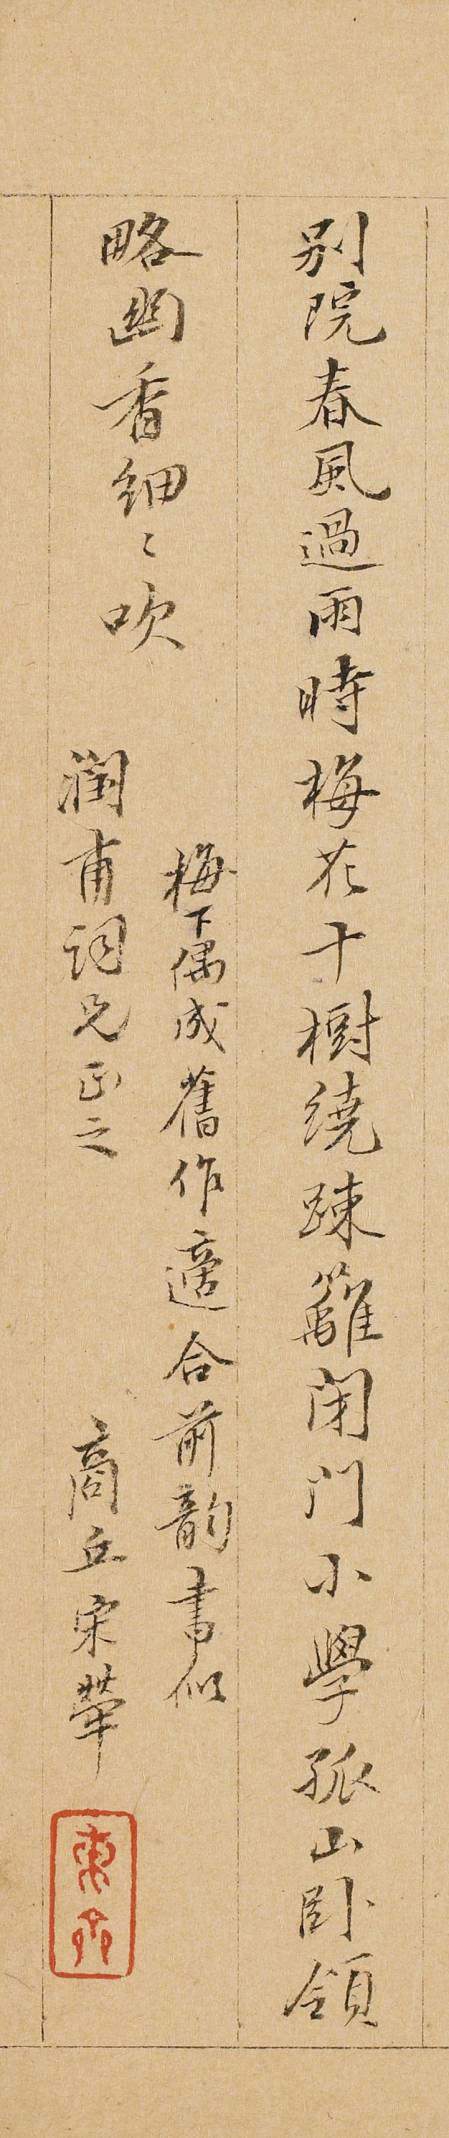 別院春風過雨時梅花十樹繞踈籬閉門小學孤山卧領
略幽香細〻吹
梅下偶成舊作適合前韵書似
潤甫詞兄正之
商丘宋犖
東齋